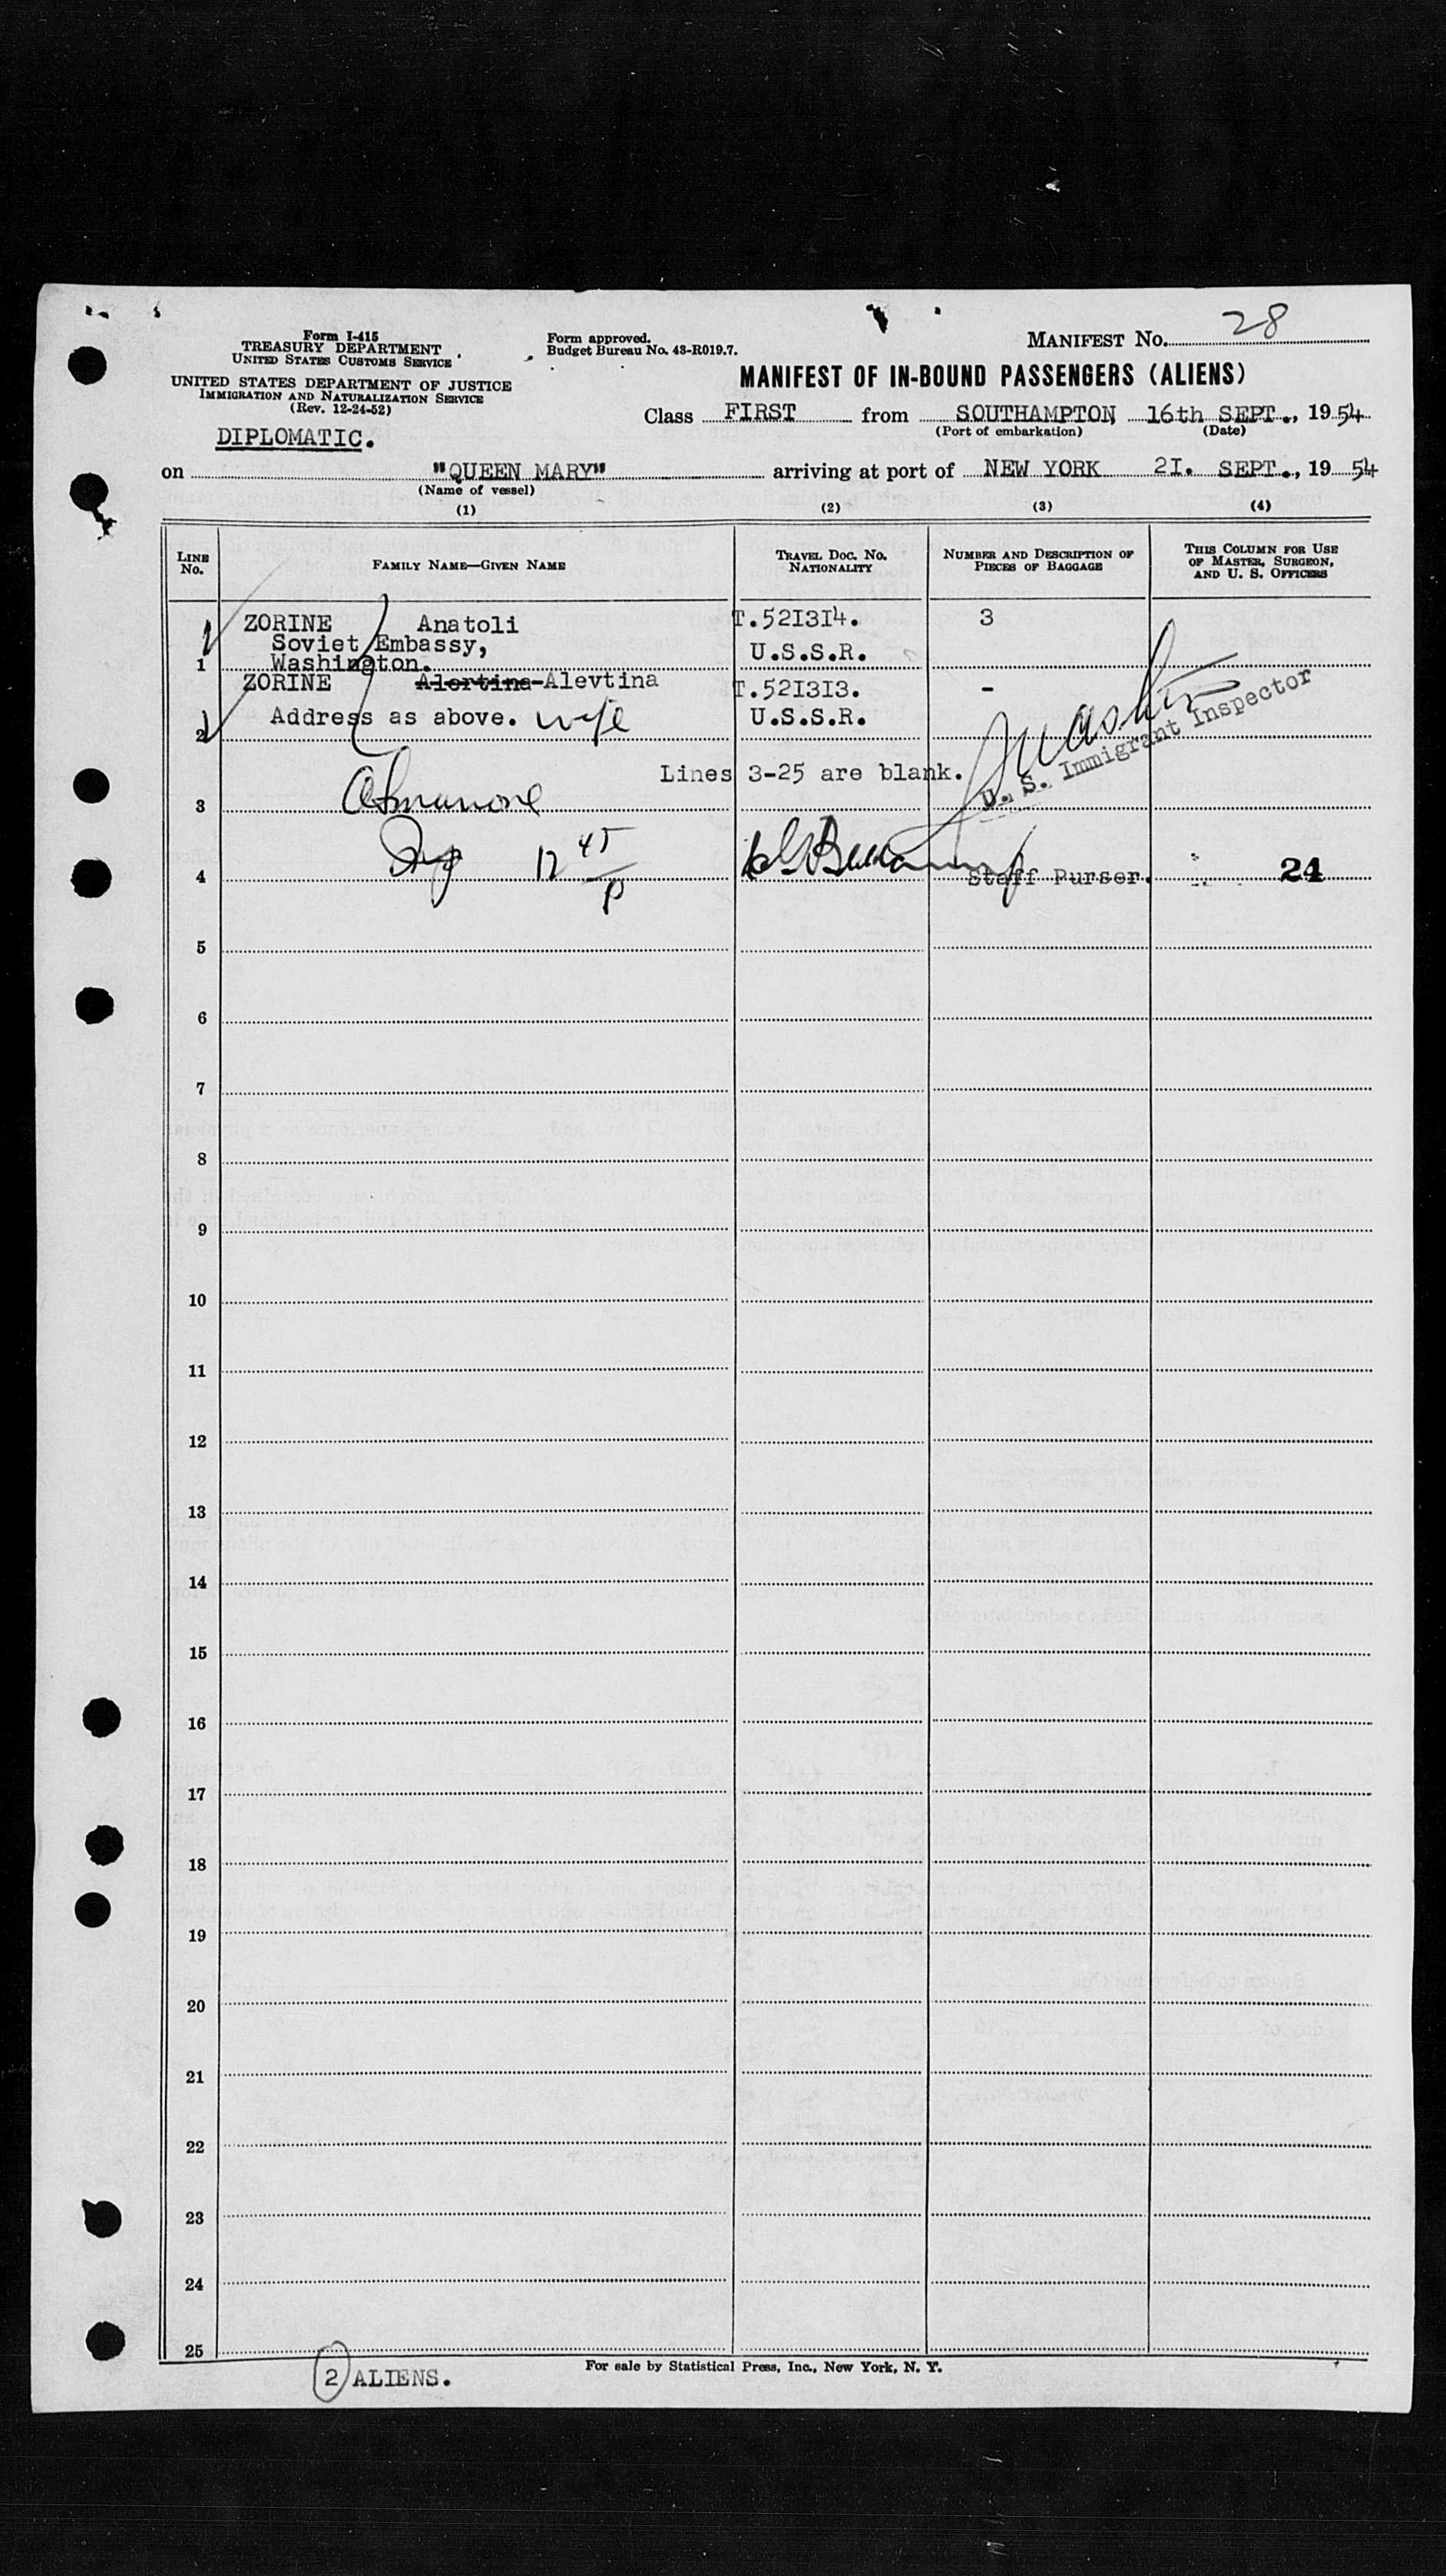 Form I-415
TREASURY DEPARTMENT
UNITED STATES CUSTOMS SERVICE
UNITED STATES DEPARTMENT OF JUSTICE
IMMIGRATION AND NATURALIZATION SERVICE
(Rev. 12-24-52)
DIPLOMATIC.
Form approved.
Budget Bureau No. 43-R019.7.
MANIFEST No. 28
MANIFEST OF IN-BOUND PASSENGERS (ALIENS)
Class FIRST from SOUTHAMPTON, 16th SEPT., 1954
(Port of embarkation) (Date)
on "QUEEN MARY" arriving at port of NEW YORK 2I. SEPT., 1954
(Name of vessel)
(1) (2) (3) (4)
LINE No. FAMILY NAME—GIVEN NAME TRAVEL DOC. No. NATIONALITY NUMBER AND DESCRIPTION OF PIECES OF BAGGAGE THIS COLUMN FOR USE OF MASTER, SURGEON, AND U. S. OFFICERS
ZORINE Anatoli T.52I3I4. 3
Soviet Embassy, U.S.S.R.
1 Washington.
ZORINE Alertina-Alevtina T.52I3I3. -
2 Address as above. wife U.S.S.R.
U. S. Immigrant Inspector
Lines 3-25 are blank.
3
12 45/P
4 Staff Purser. 24
5
6
7
8
9
10
11
12
13
14
15
16
17
18
19
20
21
22
23
24
25
2 ALIENS.
For sale by Statistical Press, Inc., New York, N. Y.